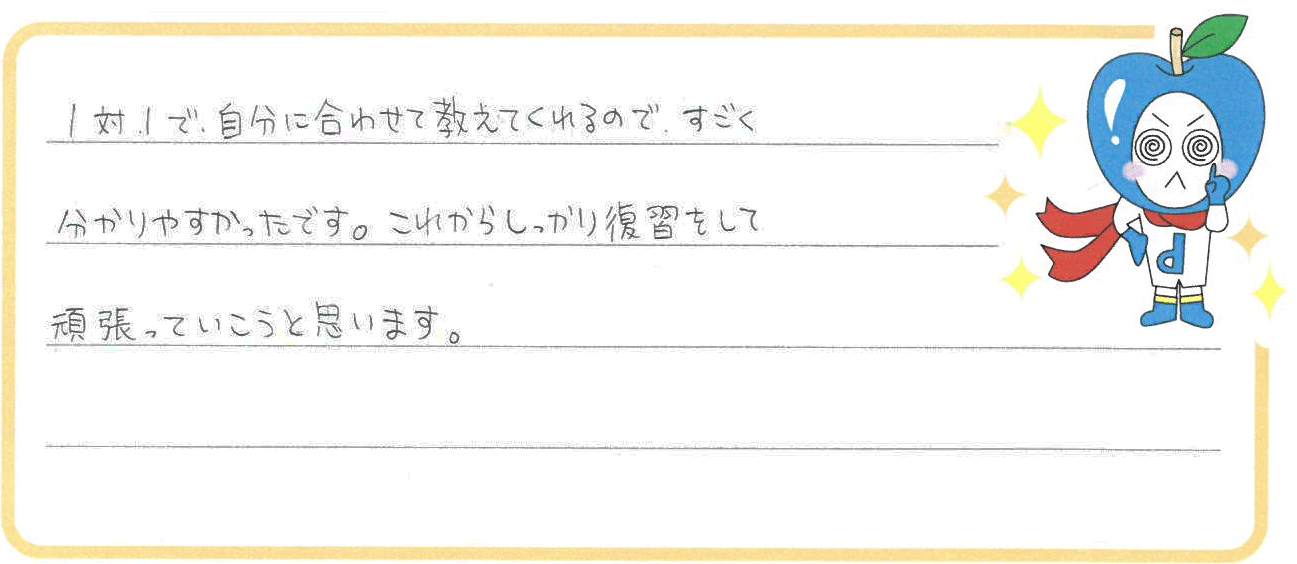 1対1で、自分に合わせて教えてくれるので、すごく
分かりやすかったです。これからしっかり復習をして
頑張っていこうと思います。
d